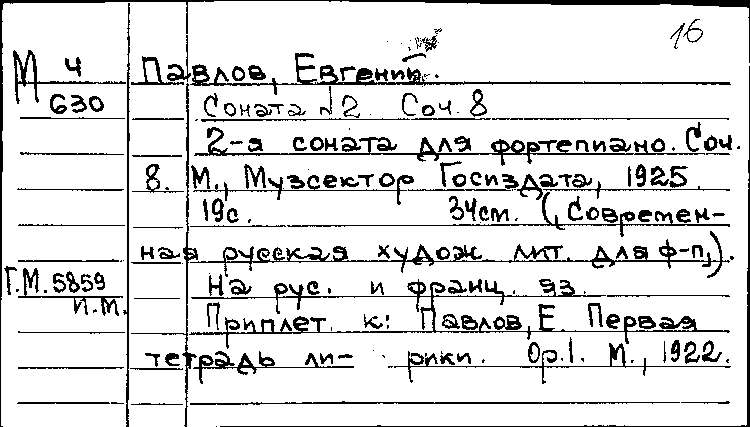 16
М 4 Павлов, Евгений.
630 Соната №2. Соч. 8
2-я соната для фортепиано. Соч.
8. М., Музсектор Госиздата, 1925.
19с. 34см. („Современ-
ная русская худож. лит. для ф-п„).
Г.М.5859 На рус. и франц. яз.
Н.М. Приплет. к: Павлов, Е. Первая
тетрадь ли- рики. Op.1. М., 1922.